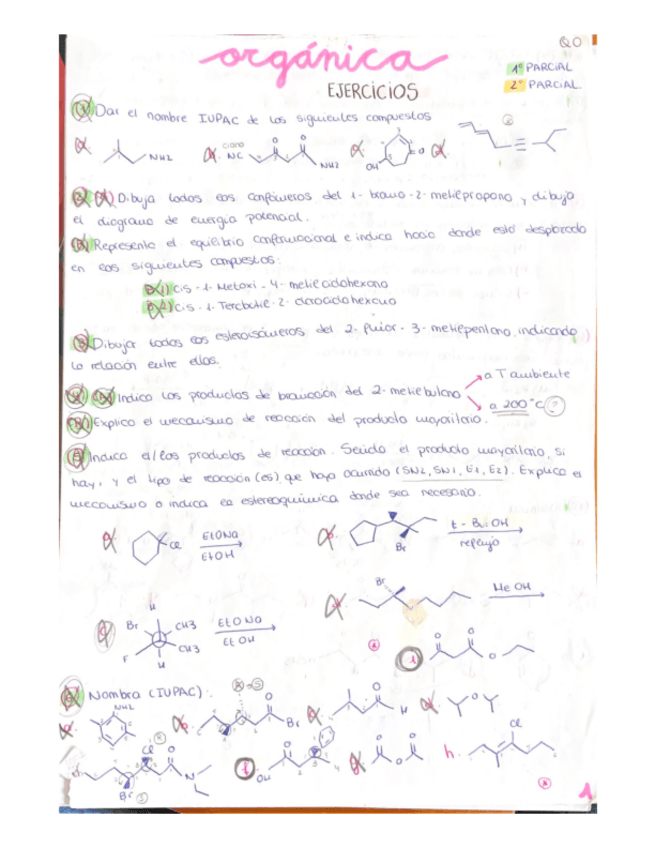 QO
orgánica
1º PARCIAL
EJERCICIOS
2º PARCIAL
Dar el nombre IUPAC de los siguientes compuestos
ciano
NH2 NC O O NH2 OH O
Dibuja todos los confómeros del 1-bromo-2-metilpropano, y dibuja
el diagrama de energía potencial.
Representa el equilibrio conformacional e indica hacia donde está desplazado
en los siguientes compuestos:
B.1) Cis-1-Metoxi-4-metilciclohexano
B.2) Cis-1-Tercbutil-2-clorociclohexano
Dibujar todos los estereoisómeros del 2-fluor-3-metilpentano, indicando
la relación entre ellos.
a T ambiente
Indica los productos de bromación del 2-metilbutano
a 200°C ?
Explica el mecanismo de reacción del producto mayoritario.
Indica el/los productos de reacción. Señala el producto mayoritario, si
hay, y el tipo de reacción (es) que haya ocurrido (SN2, SN1, E1, E2). Explica el
mecanismo o indica la estereoquímica donde sea necesario.
Cl EtONa EtOH
Br t-BuOH reflujo
H Br CH3 CH3 F H EtONa EtOH
Br MeOH
O O O
Nombra (IUPAC):
NH2 O Br O H O
Cl O N Br
OH O O O O O
h. Cl
1